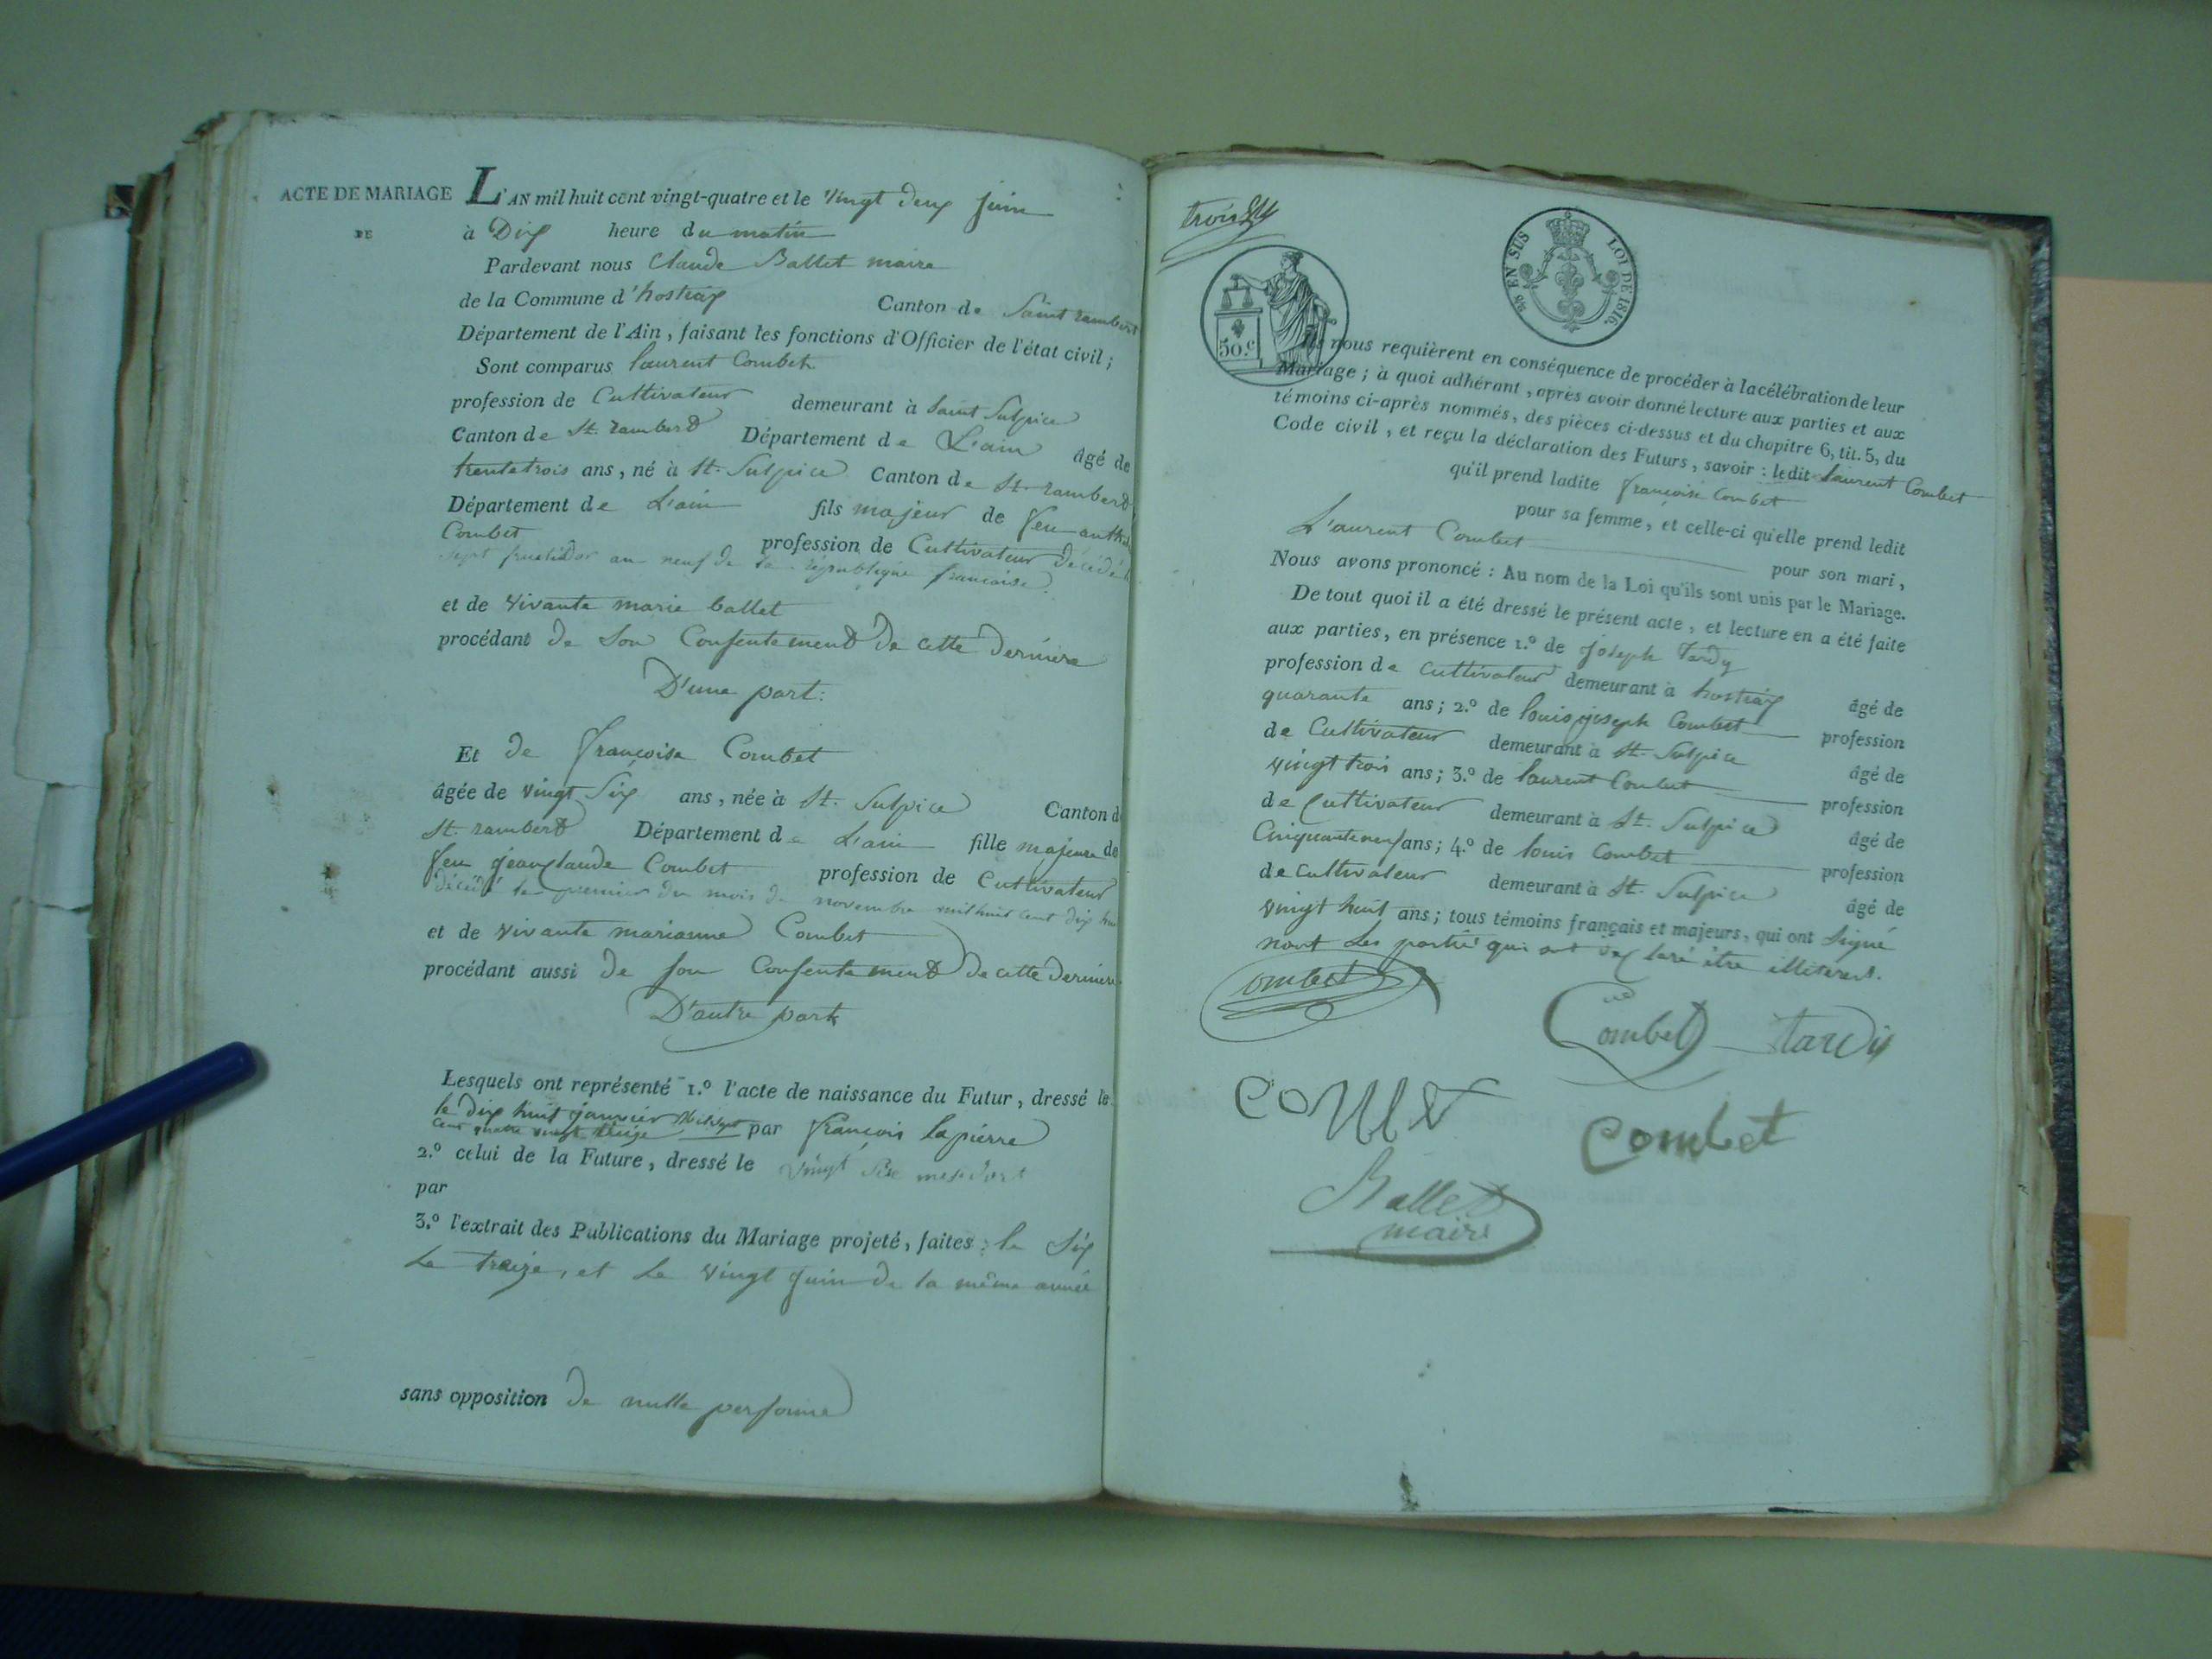 ACTE DE MARIAGE
DE
L'AN mil huit cent vingt-quatre et le vingt deux juin
à Dix heure du matin
Pardevant nous Claude Ballet maire
de la Commune d'hostiaz Canton de Saint rambert
Département de l'Ain, faisant les fonctions d'Officier de l'état civil;
Sont comparus laurent Combet
profession de Cultivateur demeurant à Saint Sulpice
Canton de St. rambert Département de L'ain âgé de
trente trois ans, né à St. Sulpice Canton de St. rambert
Département de L'ain fils majeur de feu
Combet profession de Cultivateur décédé
sept fructidor an neuf de la république francaise
et de vivante marie ballet
procédant de son Consentement de cette derniere
D'une part:
Et de françoise Combet
âgée de vingt Six ans, née à St. Sulpice Canton d
St. rambert Département de L'ain fille majeure de
feu jean Claude Combet profession de Cultivateur
décédé le premier du mois de novembre mil huit cent dix
et de vivante marianne Combet
procédant aussi de son Consentement de cette derniere
D'autre part
Lesquels ont représenté 1.º l'acte de naissance du Futur, dressé le
le dix huit janvier mil sept
cent quatre vingt par françois lapierre
2.º celui de la Future, dressé le vingt
par
3.º l'extrait des Publications du Mariage projeté, faites: le Six
Le treize, et Le vingt juin de la même année
sans opposition de nulle personne
trois
50.c
EN SUS LOI DE 1816.
Ils nous requièrent en conséquence de procéder à la célébration de leur
Mariage; à quoi adhérant, après avoir donné lecture aux parties et aux
témoins ci-après nommés, des pièces ci-dessus et du chapitre 6, tit. 5, du
Code civil, et reçu la déclaration des Futurs, savoir: ledit Laurent Combet
qu'il prend ladite françoise Combet
pour sa femme, et celle-ci qu'elle prend ledit
L'aurent Combet pour son mari,
Nous avons prononcé: Au nom de la Loi qu'ils sont unis par le Mariage.
De tout quoi il a été dressé le présent acte, et lecture en a été faite
aux parties, en présence 1.º de joseph Tardy
profession de cultivateur demeurant à hostiaz âgé de
quarante ans; 2.º de louis joseph Combet profession
de Cultivateur demeurant à St. Sulpice âgé de
vingt trois ans; 3.º de laurent Combet profession
de Cultivateur demeurant à St. Sulpice âgé de
Cinquante neuf ans; 4.º de louis Combet profession
de cultivateur demeurant à St. Sulpice âgé de
vingt huit ans; tous témoins français et majeurs, qui ont signé
qui ont déclaré être
Combet
Combet tardy
Combet
Ballet
maire